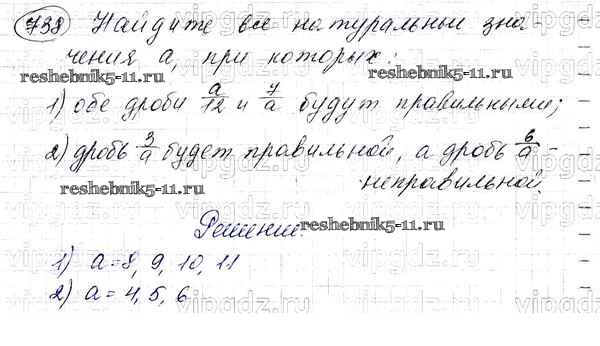 738 Найдите все натуральные зна-
чения a, при которых:
reshebnik5-11.ru
1) обе дроби a/12 и 7/a будут правильными;
2) дробь 3/a будет правильной, а дробь 6/a -
неправильной.
reshebnik5-11.ru
Решение:
reshebnik5-11.ru
1) a = 8, 9, 10, 11
2) a = 4, 5, 6